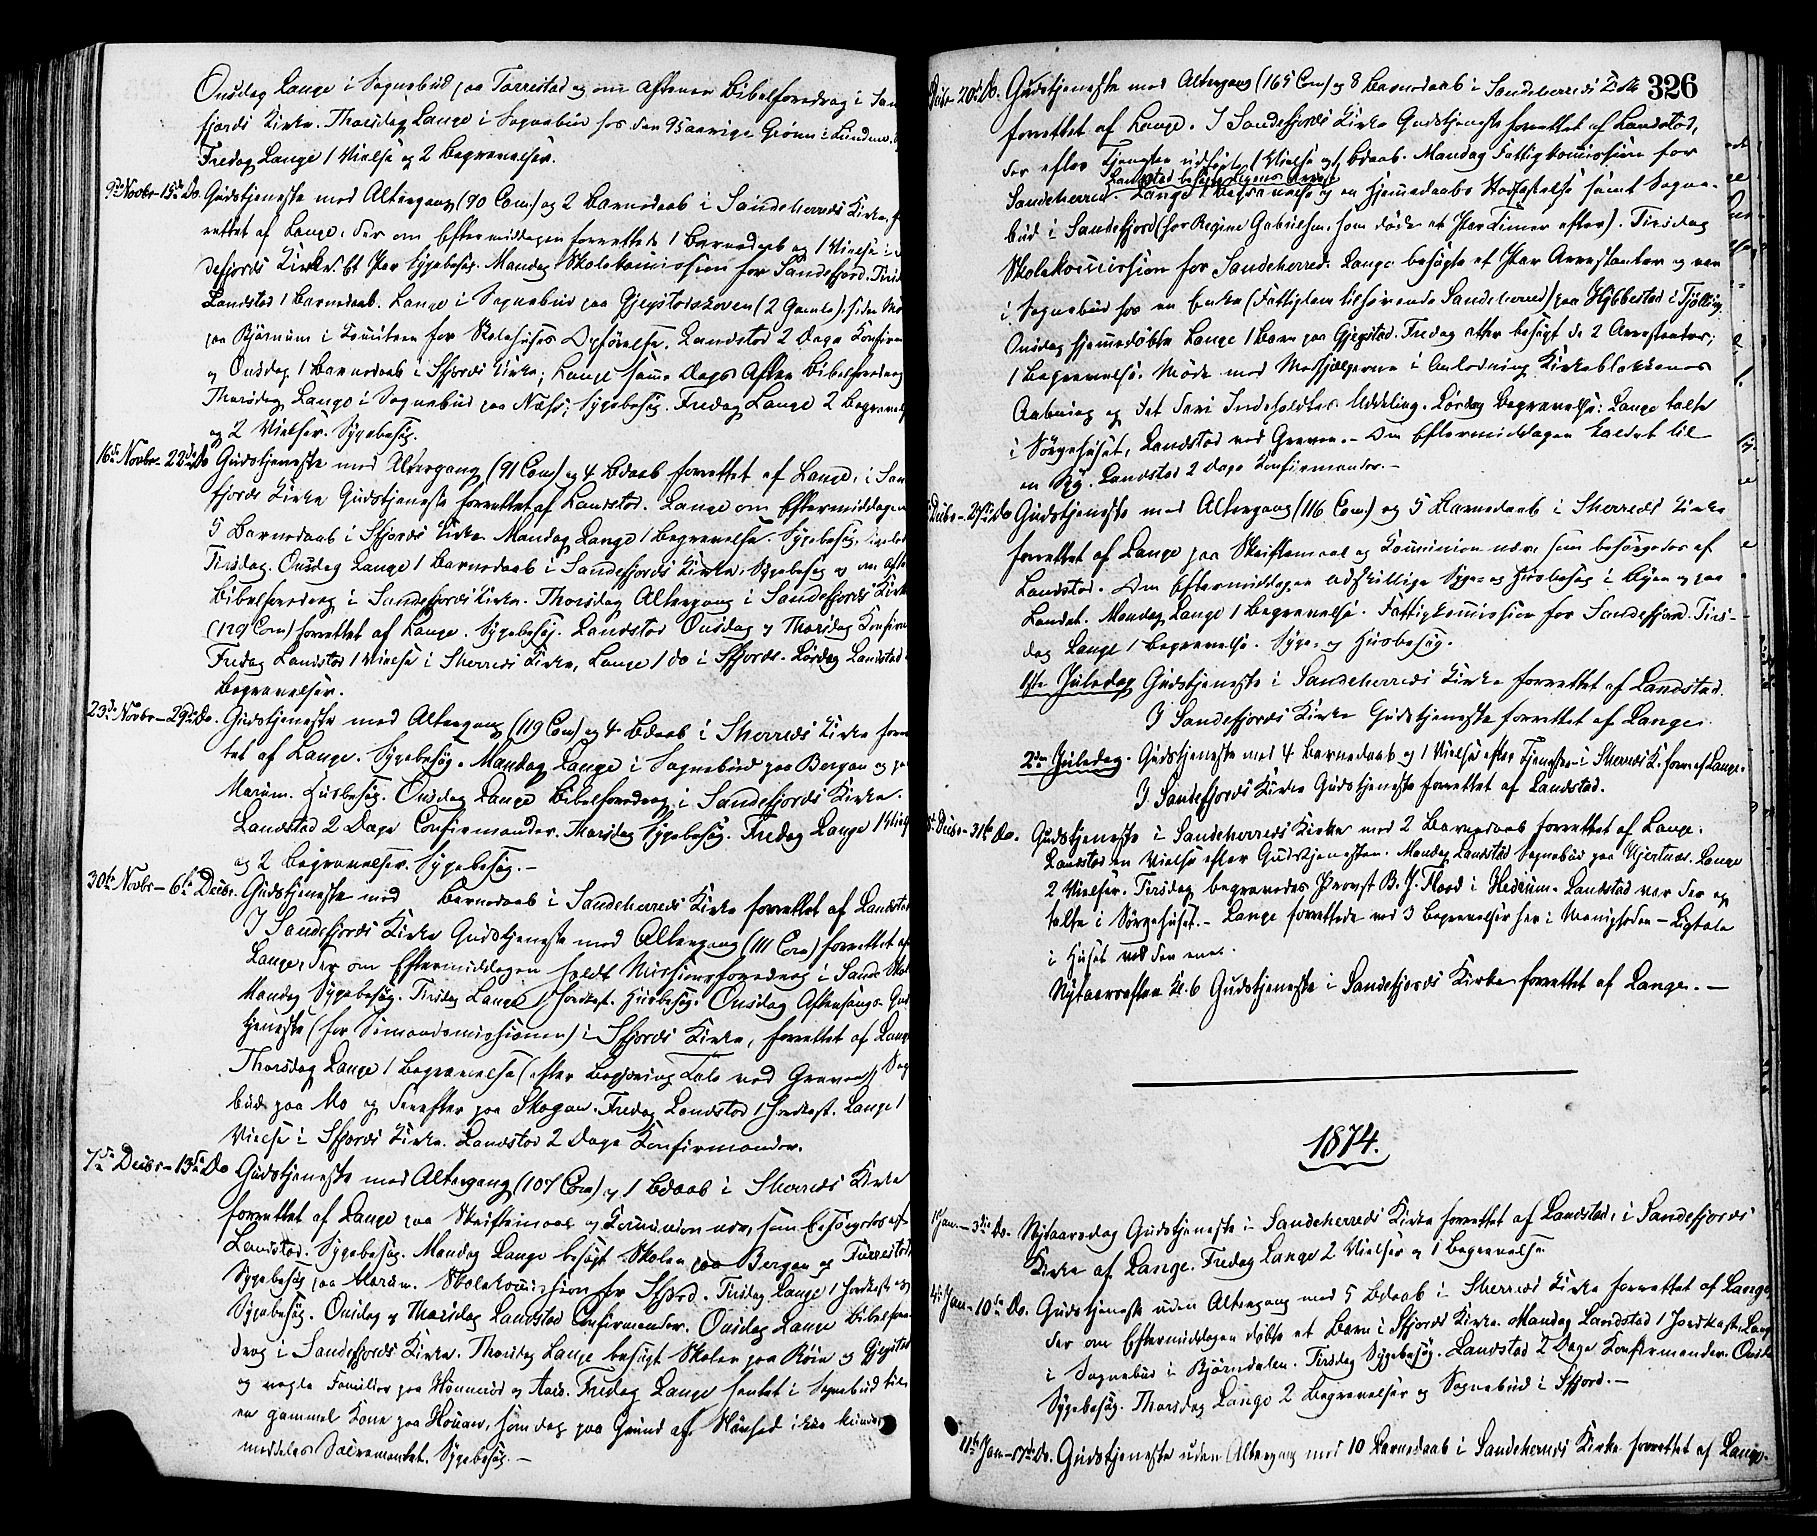 Onsdag Lange i Sognebud paa Torrestad og om Aftenen Bibelforedrag i San
fjords Kirke. Thorsdag Lange i Sognebud hos den 95aarige Grønn i Lunden.
Fredag Lange 1 Vielse og 2 Begravelser.
9de Novbr-15de Do. Gudstjeneste med Altergang (90 Com) og 2 Barnedaab i Sandeherreds Kirke, f
rettet af Lange, der om Eftermiddagen forrettede 1 Barnedaab og 1 Vielse i
defjords Kirke. Et Par Sygebesøg. Mandag Skolekomission for Sandefjord. Tirs
Landstad 1 Barnedaab. Lange i Sognebud paa Gjegstadskoven (2 Gamle), siden Mø
paa Bjørnum i Komiteen for Skolehuses Opførelse. Landstad 2 Dage Konfirm
og Onsdag 1 Barnedaab i Sfjords Kirke; Lange samme Dags Aften Bibelforedrag
Thorsdag Lange i Sognebud paa Næss; Sygebesøg. Fredag Lange 2 Begravels
og 2 Vielser. Sygebesøg.
16de Novbr-22de Do Gudstjeneste med Altergang (91 Com) og 4 Bdaab forrettet af Lange, i San
fjords Kirke Gudstjeneste forrettet af Landstad. Lange om Eftermiddagen
5 Barnedaab i Sfjords Kirke. Mandag Lange 1 Begravelse. Sygebesøg,
Tirsdag. Onsdag Lange 1 Barnedaab i Sandefjords Kirke, Sygebesøg og om Afte
Bibelforedrag i Sandefjords Kirke. Thorsdag Altergang i Sandefjords Kirk
(129 Com) forrettet af Lange. Sygebesøg. Landstad Onsdag og Thorsdag Konfirm
Fredag Landstad 1 Vielse i Sherreds Kirke, Lange 1 do i Sfjords. Lørdag Landstad
Begravelser.
23de Novbr-29de Do. Gudstjeneste med Altergang (119 Com) og 4 Bdaab i Sherreds Kirke forre
tet af Lange. Sygebesøg. Mandag Lange i Sognebud paa Bergan og paa
Marum. Husbesøg. Onsdag Lange Bibelforedrag i Sandefjords Kirke.
Landstad 2 Dage Confirmander. Thorsdag Sygebesøg. Fredag Lange 1 Viels
og 2 Begravelser. Sygebesøg.-
30te Novbr-6te Decbr. Gudstjeneste med Barnedaab i Sandeherreds Kirke forrettet af Landstad
I Sandefjords Kirke Gudstjeneste med Altergang (111 Com) forrettet af
Lange, der om Eftermiddagen holdt Missionsforedrag i Sande Skol
Mandag Sygebesøg. Tirsdag Lange 1 Jordkast. Husbesøg. Onsdag Aftensangs-Gud
tjeneste (for Sømandsmissionen) i Sfjords Kirke, forrettet af Lange
Thorsdag Lange 1 Begravelse (efter Begjæring Tale ved Graven), Sog
bud paa Mo og derefter paa Skogan. Fredag Landstad 1 Jordkast. Lange 1
Vielse i Sfjords Kirke. Landstad 2 Dage Konfirmander.
7de Decbr-13de Do Gudstjeneste med Altergang (107 Com) og 1 Bdaab i Sherreds Kirke
forrettet af Lange paa Skriftemaal og Komunion nær, som besørgedes af
Landstad. Sygebesøg. Mandag Lange besøgt Skolen paa Bergan og Furrestad
Sygebesøg paa Marum. Skolekomission for Sfjord. Tirsdag Lange 1 Jordkast og
Sygebesøg. Onsdag og Thorsdag Landstad Confirmander. Onsdag Lange Bibelfore
drag i Sandefjords Kirke. Thorsdag Lange besøgt Skolen paa Røie og Gjegstad
og nogle Familier paa Hønnerød og Aas. Fredag Lange hentet i Sognebud til
en gammel Kone paa Houan, som dog paa Grund af Uvished ikke kunde
meddeles Sacramentet. Sygebesøg.-
326
Decbr-20de Do. Gudstjeneste med Altergang (165 Com) og 8 Barnedaab i Sandeherreds Kirke
forrettet af Lange. I Sandefjords Kirke Gudstjeneste forrettet af Landstad,
der efter Tjenesten udførte 1 Vielse og 1 Bdaab. Mandag Fattigkomission for
Landstad besøgte Byens
Sandeherred. Lange 1 Begravelse og en Hjemmedaabs Stadfæstelse samt Sogne-
bud i Sandefjord (hos Regine Gabrielsen, som døde et Par Timer efter). Tirsdag
Skolekomission for Sandeherred. Lange besøgte et Par Arrestanter og var
i Sognebud hos en Enke (Fattiglem tilhørende Sandeherred) paa Hybbestad i Tjølling
Onsdag hjemmedøbte Lange 1 Barn paa Gjegstad. Fredag atter besøgt de 2 Arrestanter;
1 Begravelse. Møde med Medhjælperne i Anledning Kirkeblokkenes
Aabning og det deri Indeholdtes Uddeling. Lørdag Begravelse: Lange talte
i Sørgehuset, Landstad ved Graven.- Om Eftermiddagen kaldet til
en Syg. Landstad 2 Dage Konfirmander.-
Decbr-27de Do Gudstjeneste med Altergang (116 Com) og 5 Barnedaab i Sherreds Kirke
forrettet af Lange paa Skriftemaal og Komunion nær, som besørgedes af
Landstad. Om Eftermiddagen adskillige Syge- og Husbesøg i Byen og paa
Landet. Mandag Lange 1 Begravelse. Fattigkomission for Sandefjord. Tirs-
dag Lange 1 Begravelse. Syge- og Husbesøg.
1ste Juledag Gudstjeneste i Sandeherreds Kirke forrettet af Landstad.
I Sandefjords Kirke Gudstjeneste forrettet af Lange.
2den Juledag. Gudstjeneste med 4 Barnedaab og 1 Vielse efter Tjenesten i Sherreds K. forr. af Lange.
I Sandefjords Kirke Gudstjeneste forrettet af Landstad.
Decbr-31te Do. Gudstjeneste i Sandeherreds Kirke med 2 Barnedaab forrettet af Lange.
Landstad en Vielse efter Gudstjenesten. Mandag Landstad Sognebud paa Hjertnæs. Lange
2 Vielser. Tirsdag begravedes Provst B. J. Flood i Hedrum. Landstad var der og
talte i Sørgehuset.- Lange forrettede ved 3 Begravelser her i Menigheden - Ligtale
i Huset ved den ene.
Nytaarsaften Kl. 6 Gudstjeneste i Sandefjords Kirke forrettet af Lange.-
1874.
1 Jan-3die Do. Nytaarsdag Gudstjeneste i Sandeherreds Kirke forrettet af Landstad, i Sandefjords
Kirke af Lange. Fredag Lange 2 Vielser og 1 Begravelse.
4de Jan-10de Do. Gudstjeneste uden Altergang med 5 Bdaab i Sherreds Kirke forrettet af Lange,
der om Eftermiddagen døbte et Barn i Sfjords Kirke. Mandag Landstad 1 Jordkast, Lange
i Sognebud i Bjørndalen. Tirsdag Sygebesøg. Landstad 2 Dage Konfirmander. Onsd
Sygebesøg. Thorsdag Lange 2 Begravelser og Sognebud i Sfjord.-
11te Jan-17de Do. Gudstjeneste uden Altergang med 10 Barnedaab i Sandeherreds Kirke forrettet af Lange.